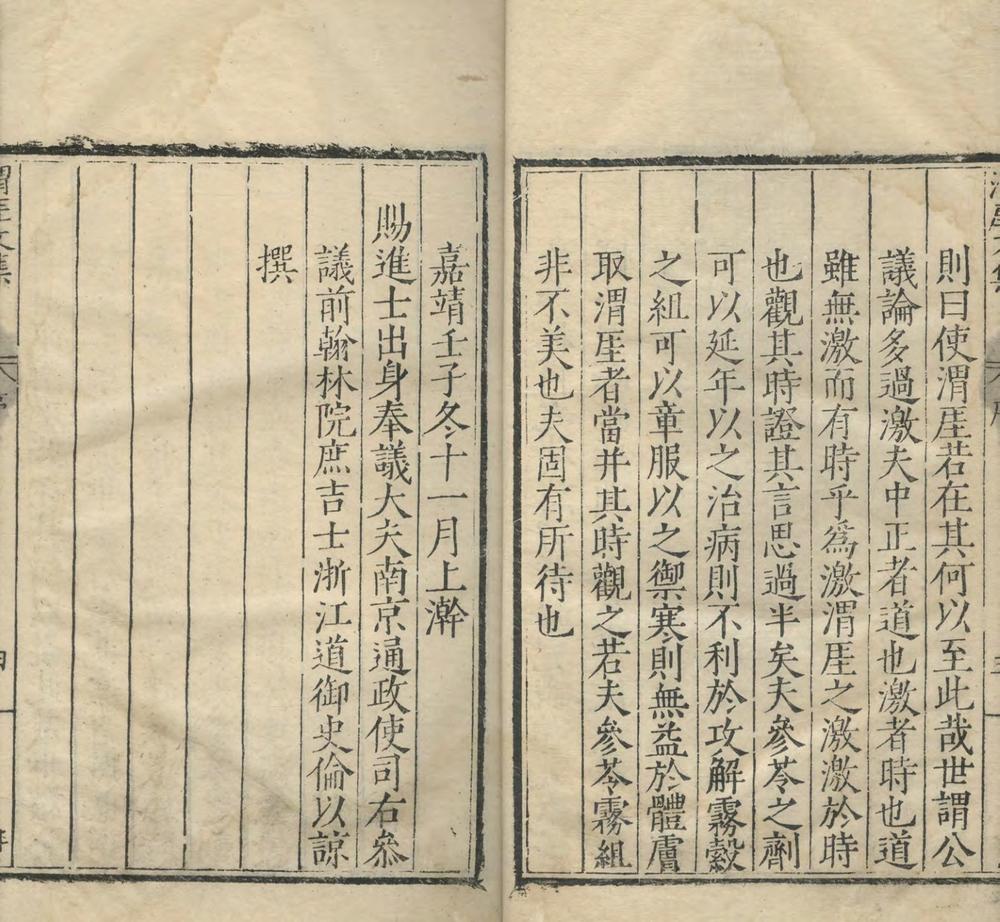 則曰使渭厓若在其何以至此哉世謂公
議論多過激夫中正者道也激者時也道
雖無激而有時乎爲激渭厓之激激於時
也觀其時證其言思過半矣夫參苓之劑
可以延年以之治病則不利於攻解霧縠
之組可以章服以之禦寒則無益於體膚
取渭厓者當并其時觀之若夫參苓霧組
非不美也夫固有所待也
嘉靖壬子冬十一月上澣
賜進士出身奉議大夫南京通政使司右參
議前翰林院庶吉士浙江道御史倫以諒
撰
渭厓文集
序